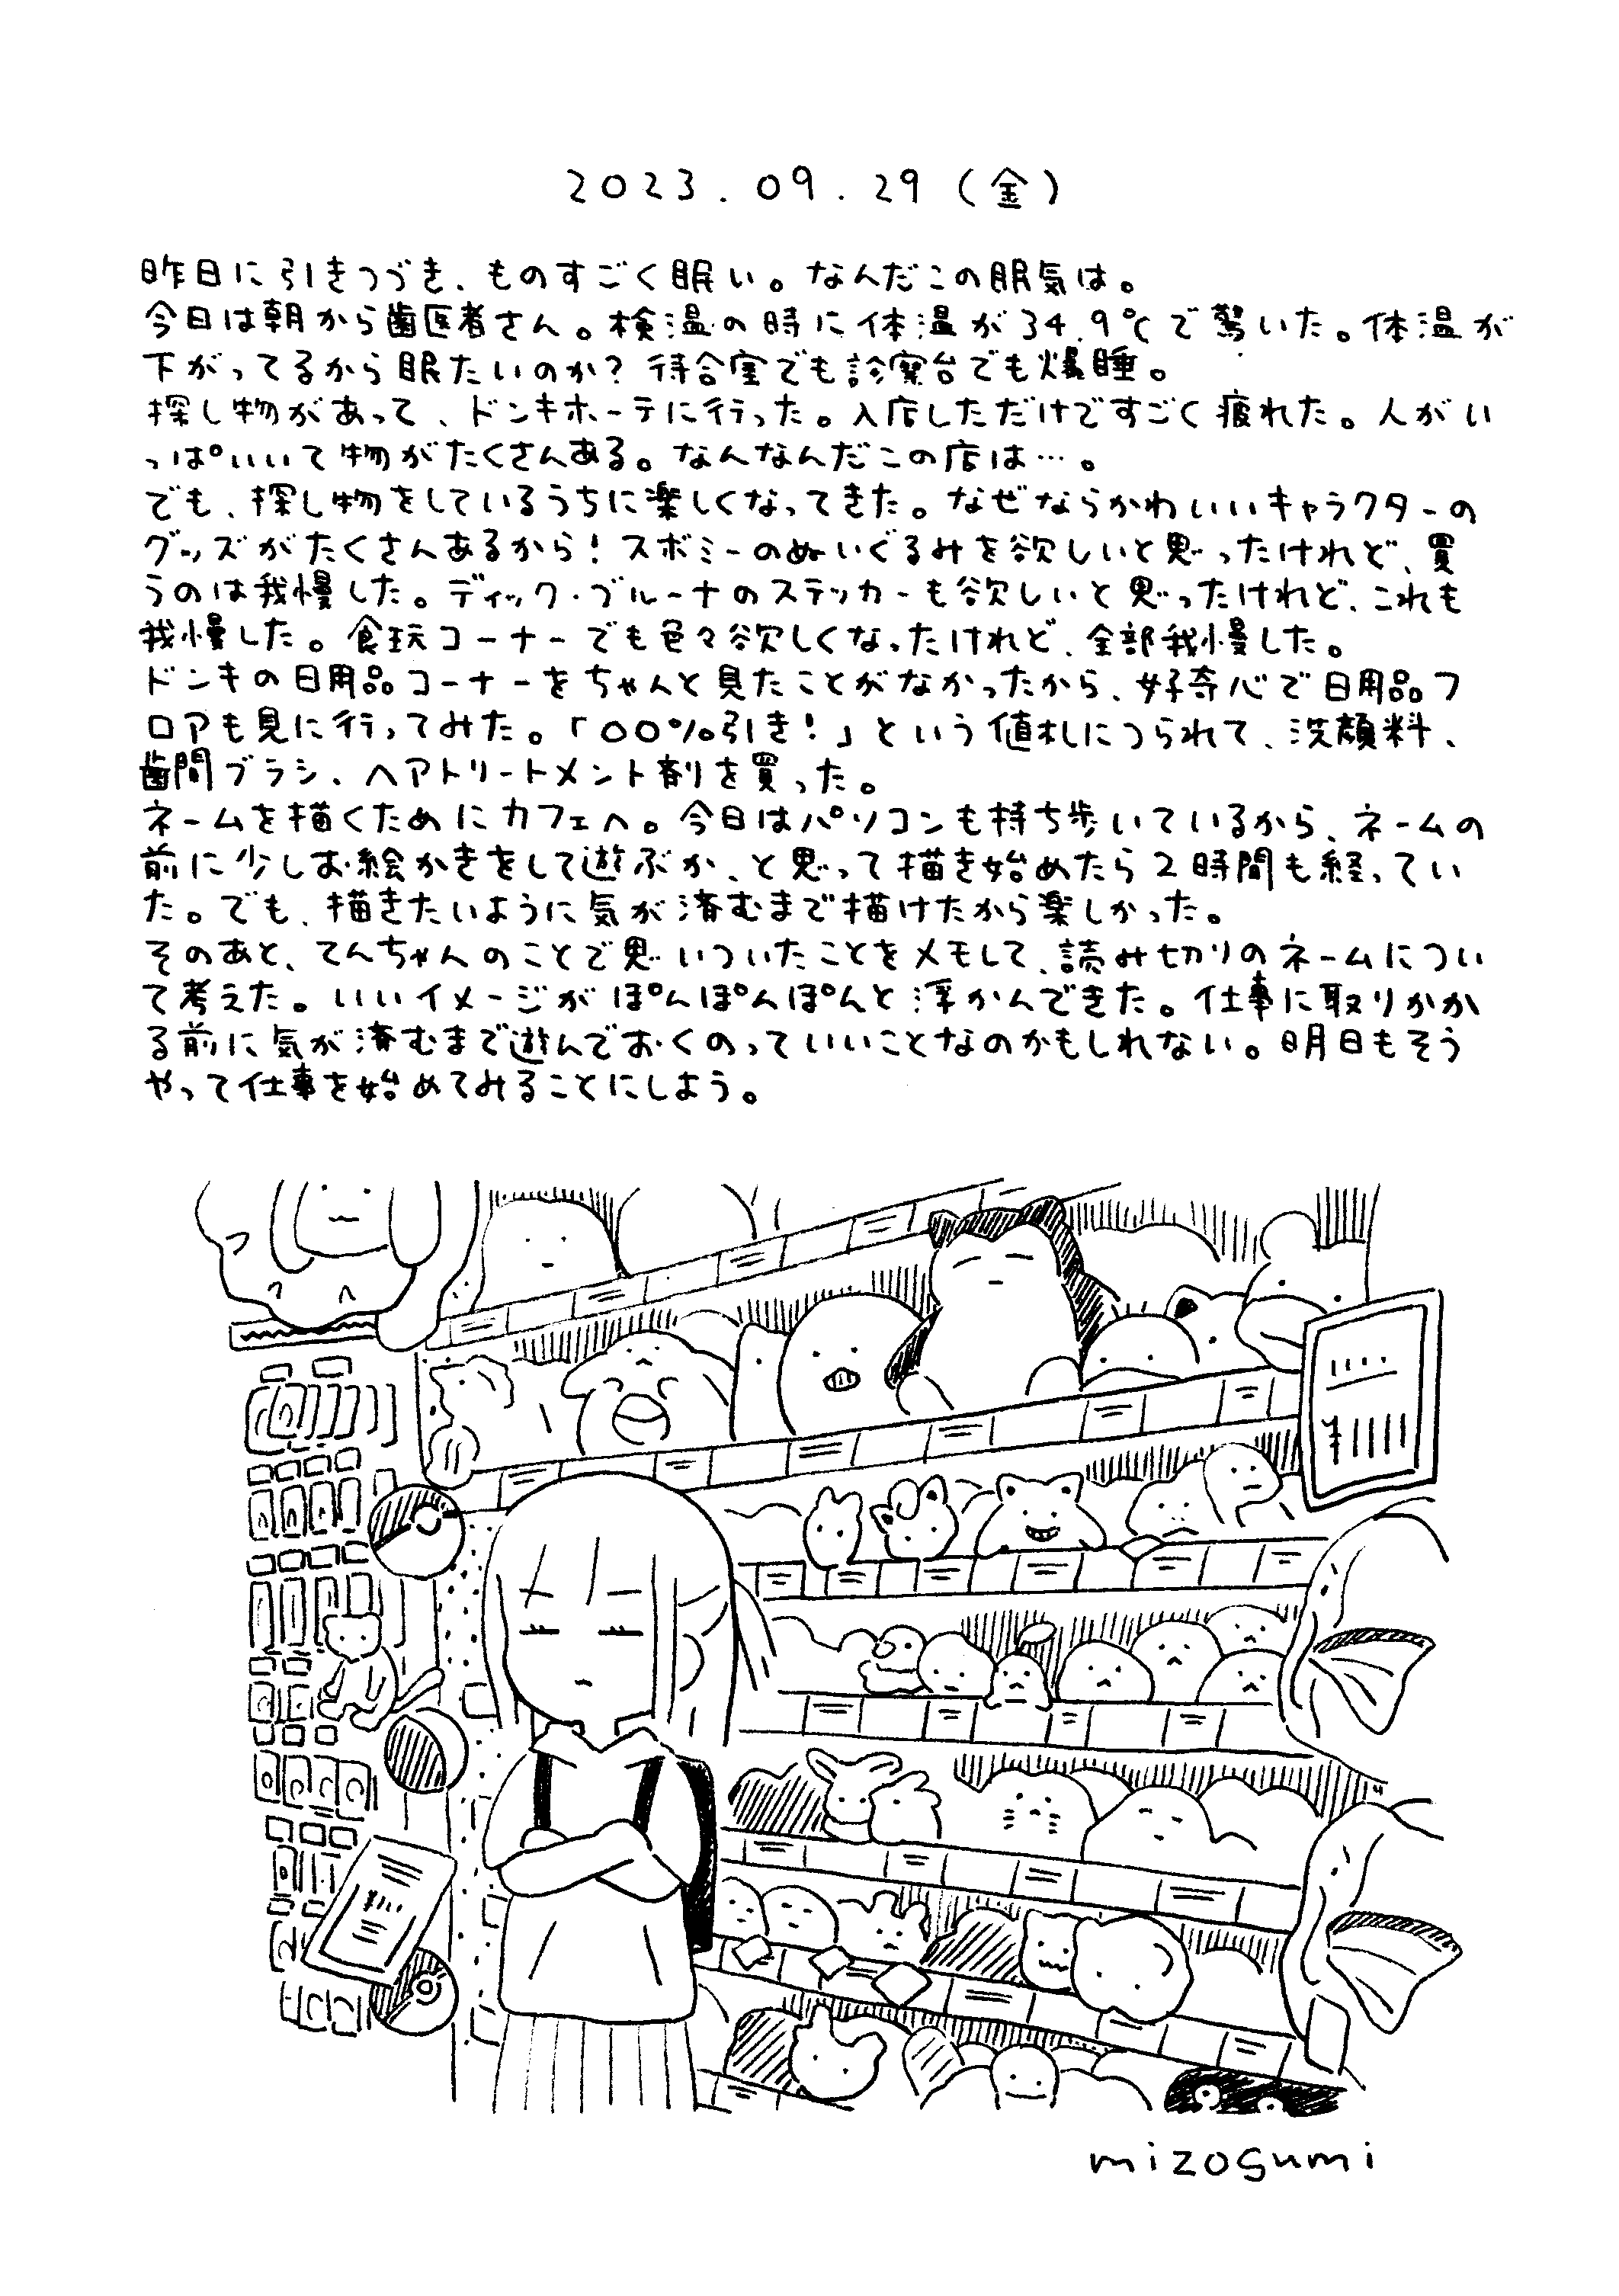 2023.09.29(金)
昨日に引きつづき、ものすごく眠い。なんだこの眠気は。
今日は朝から歯医者さん。検温の時に体温が34.9℃で驚いた。体温が
下がってるから眠たいのか?待合室でも診察台でも爆睡。
探し物があって、ドンキホーテに行った。入店しただけですごく疲れた。人がい
っぱいいて物がたくさんある。なんなんだこの店は…。
でも、探し物をしているうちに楽しくなってきた。なぜならかわいいキャラクターの
グッズがたくさんあるから!スボミーのぬいぐるみを欲しいと思ったけれど、買
うのは我慢した。ディック・ブルーナのステッカーも欲しいと思ったけれど、これも
我慢した。食玩コーナーでも色々欲しくなったけれど、全部我慢した。
ドンキの日用品コーナーをちゃんと見たことがなかったから、好奇心で日用品フ
ロアも見に行ってみた。「〇〇%引き!」という値札につられて、洗顔料、
歯間ブラシ、ヘアトリートメント剤を買った。
ネームを描くためにカフェへ。今日はパソコンも持ち歩いているから、ネームの
前に少しお絵かきをして遊ぶか、と思って描き始めたら2時間も経ってい
た。でも、描きたいように気が済むまで描けたから楽しかった。
そのあと、てんちゃんのことで思いついたことをメモして、読み切りのネームについ
て考えた。いいイメージがぽんぽんぽんと浮かんできた。仕事に取りかか
る前に気が済むまで遊んでおくのっていいことなのかもしれない。明日もそう
やって仕事を始めてみることにしよう。
mizogumi